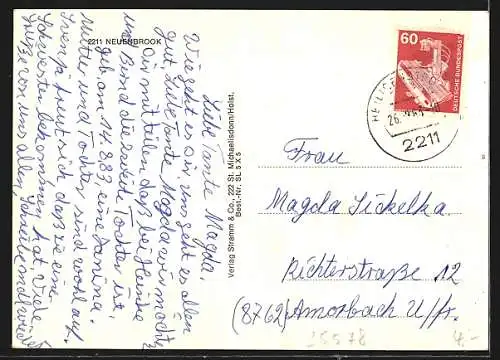 2211 NEUENBROOK
Liebe Tante Magda,
Wie geht es Dir uns geht es allen
gut, Liebe Tante Magda wir möchte
Dir mitteilen daß bei Heinke
und Bernd die zweite Tochter ist,
geb. am 14.8.83, eine Janina.
Mutter und Tochter sind wohl auf.
Svenja freut sich daß sie eine
Schwester bekommen hat. Viele
Grüße von uns allen Schreibe mal wieder
Verlag Stramm & Co., 222 St. Michaelisdonn/Holst.
Best.-Nr. SL 5 X 5
60
DEUTSCHE BUNDESPOST
2211
Frau
Magda Sickelka
Richterstraße 12
(8762) Amorbach U/fr.
25578
4,-